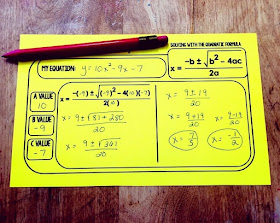 SOLVING WITH THE QUADRATIC FORMULA
MY EQUATION: y = 10x² - 9x - 7
x = (-b ± √(b² - 4ac)) / 2a
A VALUE
10
B VALUE
-9
C VALUE
-7
x = (-(-9) ± √((-9)² - 4(10)(-7))) / 2(10)
x = (9 ± √(81 + 280)) / 20
x = (9 ± √361) / 20
x = (9 ± 19) / 20
x = (9 + 19) / 20
x = (9 - 19) / 20
x = 7/5
x = -1/2